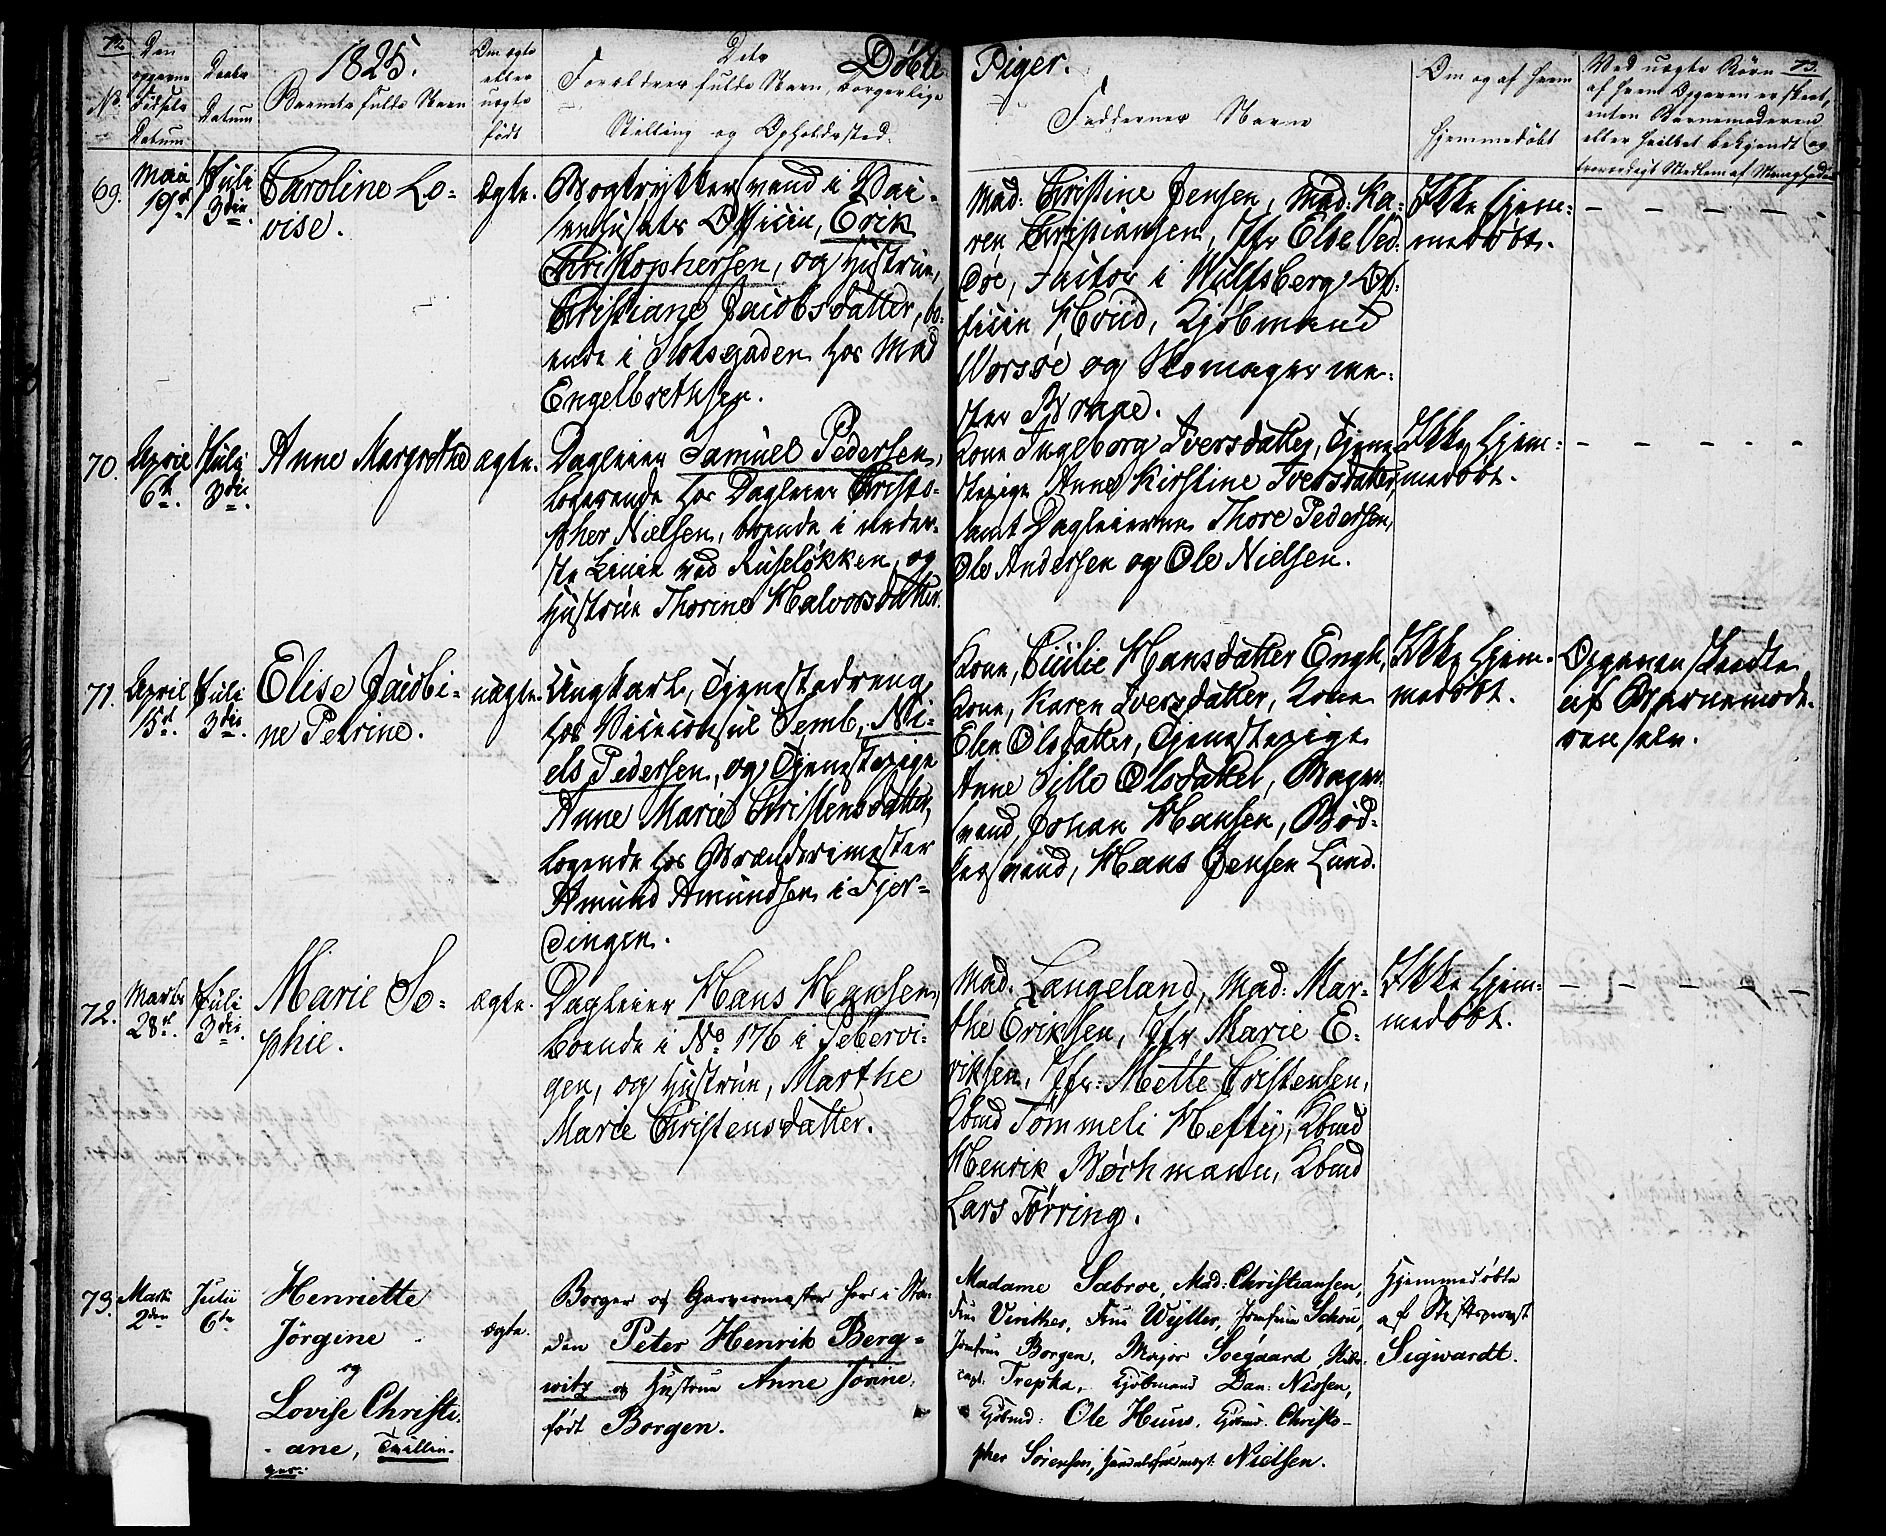 72.
1825.
Døbte
Piger.
73.
No.
Den opgivne Fødsels Datum
Daabs Datum
Barnets fulde Navn
Om ægte eller uægte født
Dets Forældres fulde Navn, borgerlige
Stilling og Opholdssted.
Faddernes Navne
Om og af hvem
hjemmedøbt
Ved uægte Børn
af hvem Opgaven er skeet,
enten Barnemoderen
eller hvilket bekjendt og
troværdigt Medlem af Menigheden
69.
Mai 19de
Juli 3die.
Caroline Lo-
vise.
ægte.
Bogtrykkersvend i Vai-
senhusets Officin, Erik
Christophersen, og Hustrue,
Christiane Jacobsdatter, bo-
ende i Slotsgaden hos Mad
Engelbrethsen.
Mad: Christine Jensen, Mad: Ka-
ren Christiansen, Jfr Else Ved-
Factor i Wulfsberg Of-
ficin Kjøbmand
Worsøe og Skomagerme-
ster
Ikke hjem-
medøbt.
70.
April 6te.
Juli 3die.
Anne Margrethe
ægte.
Dagleier Samuel Pedersen,
logerende hos Dagleier Christo-
pher Nielsen, boende i neder-
ste Linie ved Ruseløkken, og
Hustrue Thorine Halvorsdatter.
Kone Ingeborg Iversdatter, Tjene-
stepige Anne Kirstine Iversdatter,
samt Dagleierne Thore Pedersen,
Ole Andersen og Ole Nielsen.
Ikke hjem-
medøbt.
71.
April 15de.
Juli 3die.
Elise Jacobi-
ne Petrine.
uægte.
Ungkarl, Tjenestedreng
hos Viceconsul Semb, Ni-
els Pedersen, og Tjenestepige
Anne Marie Christensdatter,
logerende hos Brænderimester
Amund Amundsen i Fjer-
dingen.
Kone, Cicilie Hansdatter Engh,
Kone, Karen Iversdatter, Kone
Elen Olsdatter, Tjenestepige
Anne Sille Olsdatter, Bager-
svend, Johan Hansen, Bød-
kersvend, Hans Jensen Lund.
Ikke hjem-
medøbt.
Opgaven skeedte
af Barnemode-
ren selv.
72.
Marts 28de.
Juli 3die.
Marie So-
phie.
ægte.
Dagleier Hans Hansen,
boende i No 176 i Pebervi-
gen, og Hustrue, Marthe
Marie Christensdatter.
Mad. Langeland, Mad: Mar-
the Eriksen, Jfr Marie E-
riksen, Jfr: Mette Cristensen,
Kbmd Tømmeli Hefty, Kbmd
Henrik Børchmann, Kbmd
Lars Tørring.
Ikke hjem-
medøbt.
73.
Marts 2den
Julii 6te
Henriette
Jørgine
og
Lovise Christi-
ane, Tvillin-
ger.
ægte.
Borger og Garvermester her i Sta-
den Peter Henrik Berg-
witz og Hustrue Anne Jørine,
født Borgen.
Madame Sæbroe, Mad: Christiansen,
Fru Fru Wyller, Jomfrue Schou,
Jomfrue Borgen, Major Soegaard,
Trepka, Kjøbmand Dan: Nissen,
Kjøbmd: Ole Huus, Kjøbmd. Christo-
pher Sørensen, Nielsen.
Hjemmedøbte
af Stiftsprovst
Sigwardt.